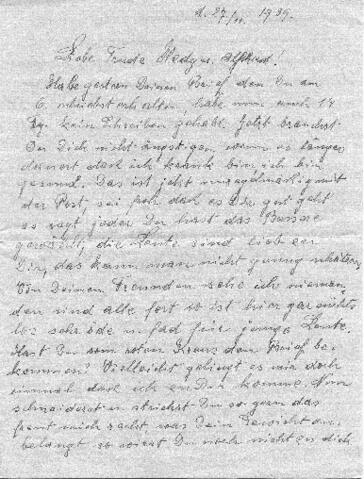 d. 27/11. 1939.
Liebe Trude Hedy u. Alfred!
Habe gestern Deinen Brief den Du am
6. schriebst erhalten, habe nun auch 14
Tg. kein Schreiben gehabt. Jetzt brauchst
Du Dich nicht ängstigen, wenn es länger
dauert das ich krank bin ich bin
gesund. Das ist jetzt unregelmäßig mit
der Post, sei froh das es Dir gut geht
es sagt jeder Du hast das Bessere
gewählt, die Leute sind lieb zu
Dir, das kann man nicht genug schätzen.
Von Deinen Freunden sehe ich nieman
den sind alle fort es ist hier gar nichts
los schöde u fad für junge Leute.
Hast Du vom roten Kreuz den Brief be
kommen? Vielleicht gelingt es mir doch
einmal das ich zu Dir komme. Nun
schneidern strickst Du so gern das
freut mich sehr, was Dein Gewicht an
belangt so wirst Du noch nicht zu dick